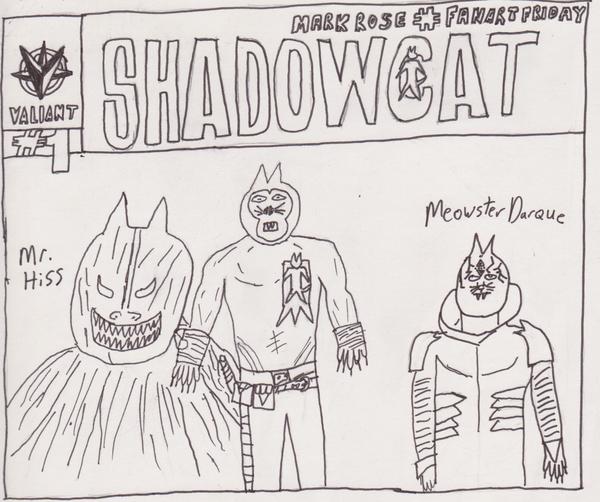 MARK ROSE # FANART FRIDAY
VALIANT
SHADOWCAT
#1
Mr.
Hiss
Meowster Darque